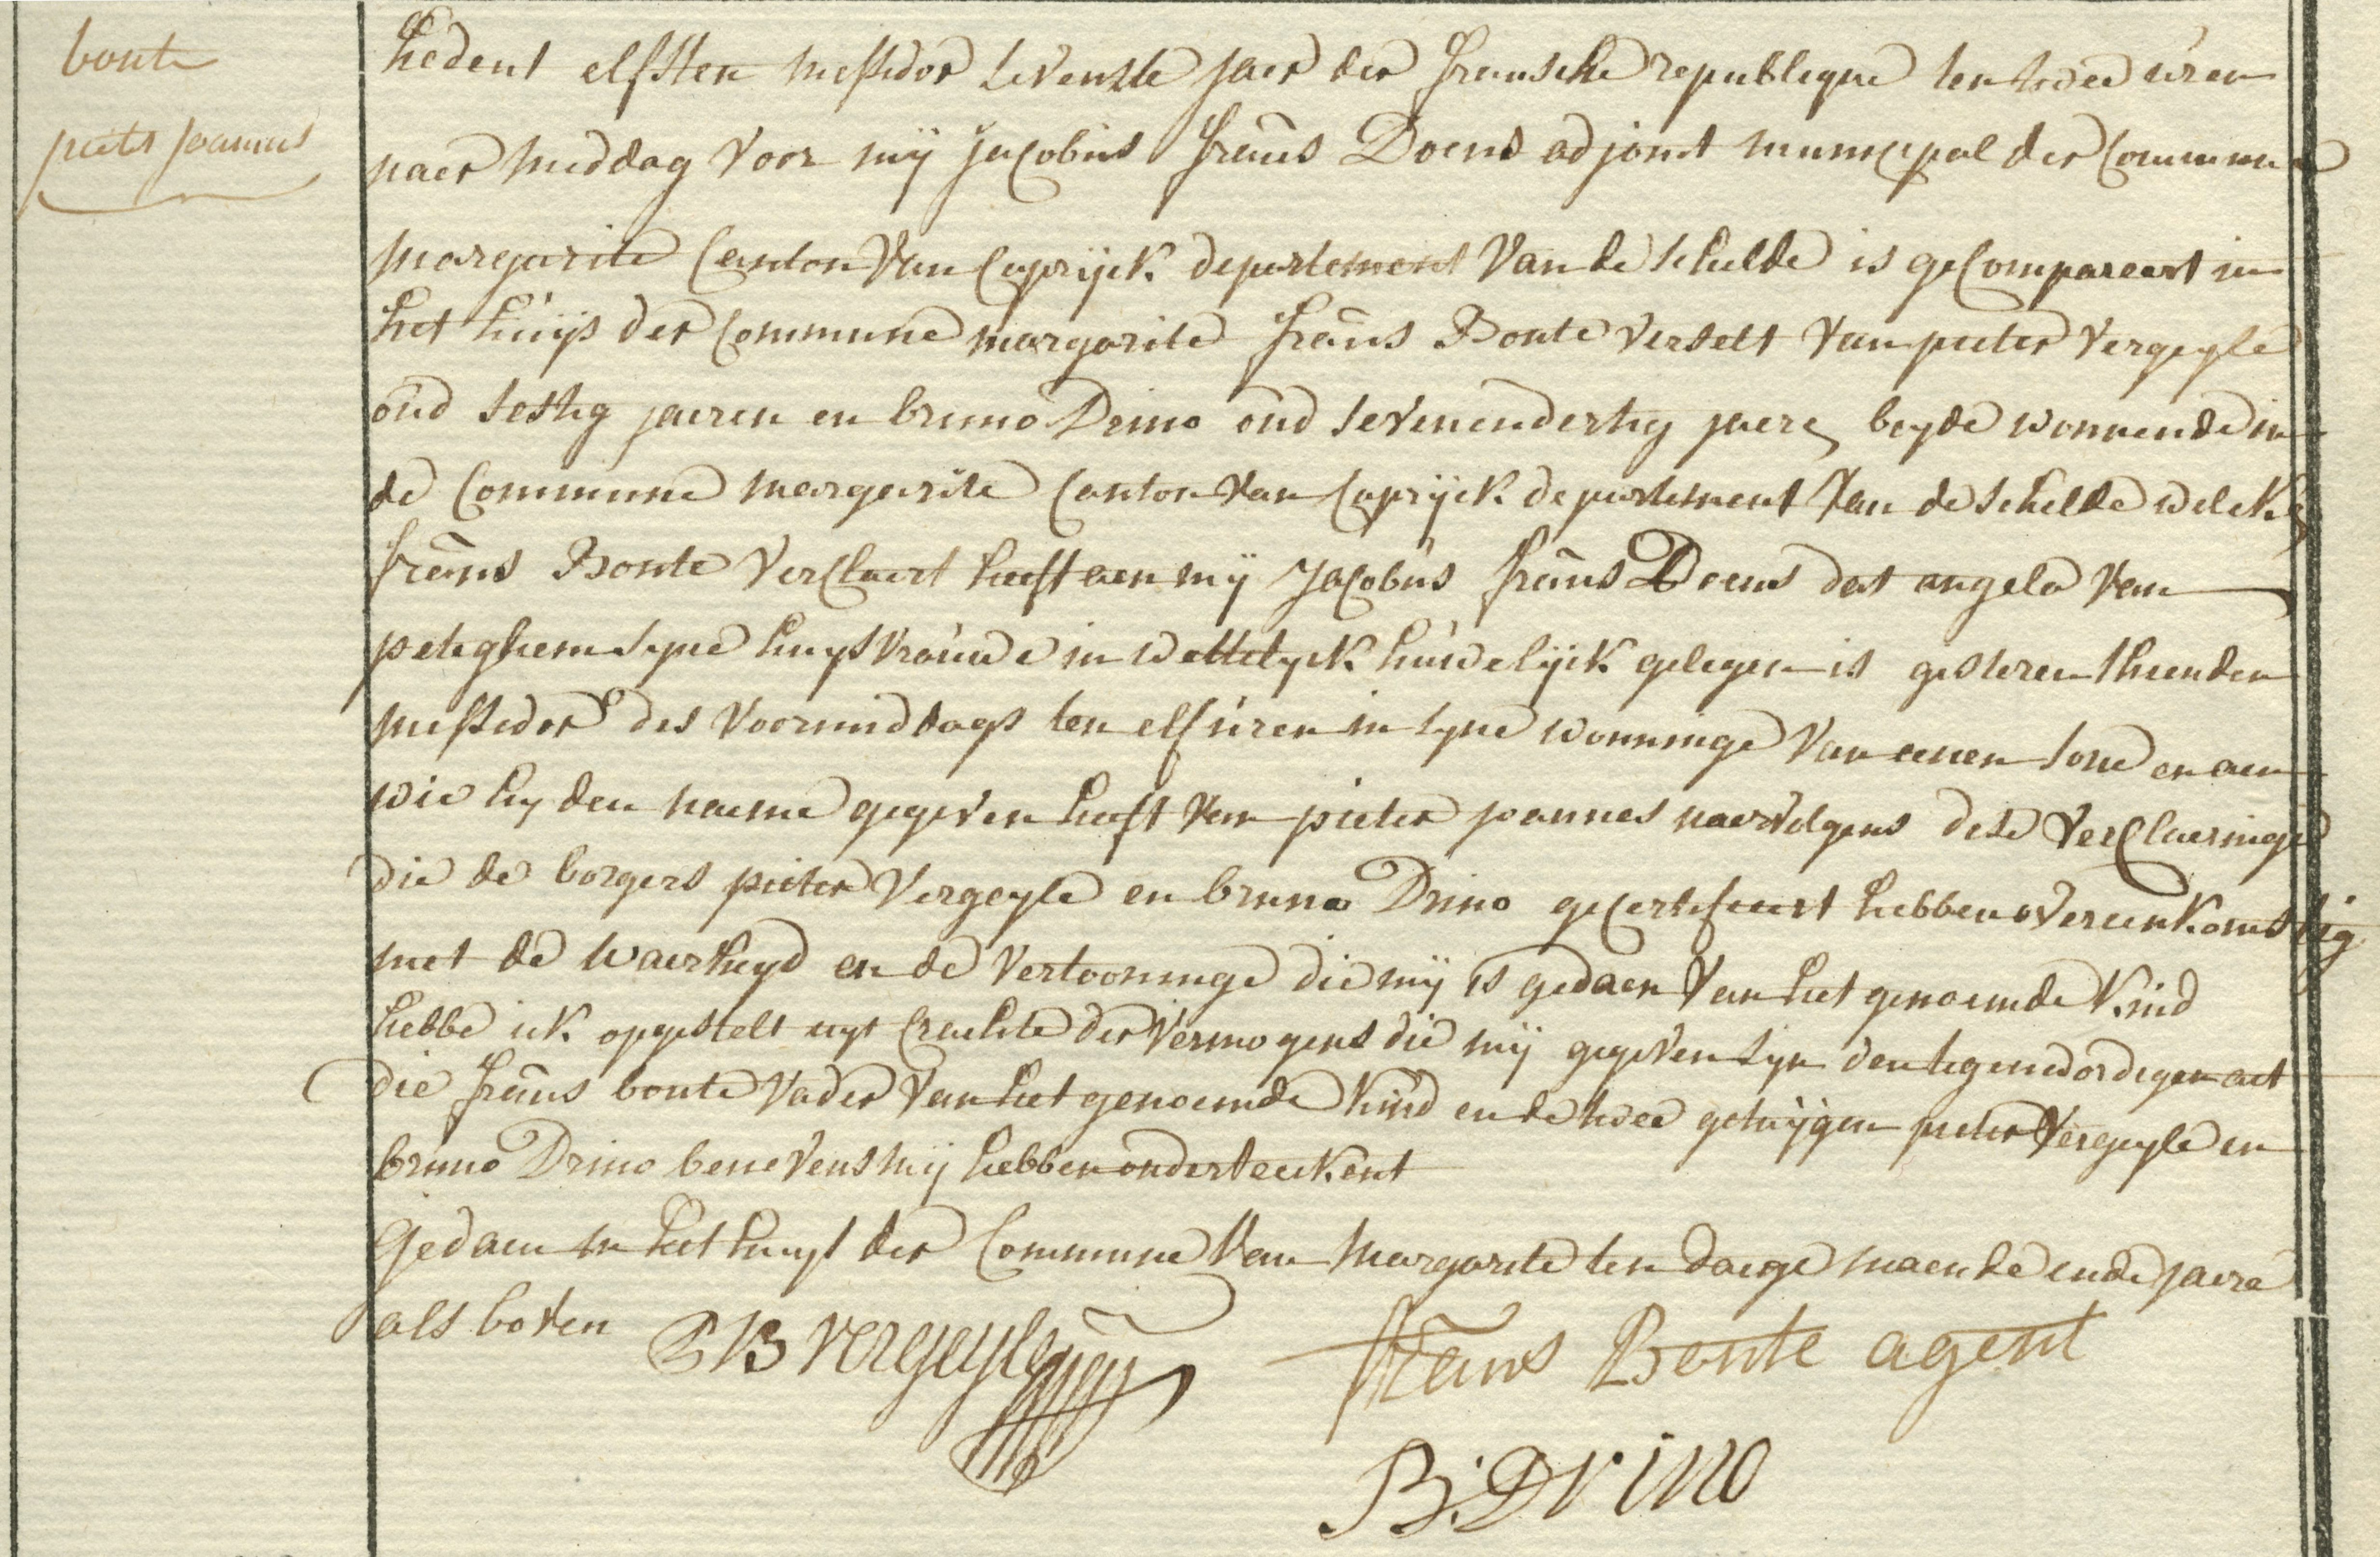 bonte
pieter joannes
hedent elfsten messidor sevenste jaer der fransche republique ten twee uren
naer middag voor mij Jacobus frans Doens adjoint municipal der Commune
margarite Canton van Caprijck departement van de schelde is geCompareert in
het huijs der Commune margarite frans Bonte verselt van pieter vergeyle
oud sestig jaeren en bruno Drino oud sevenendertig jaere, beyde wonnende in
de Commune margarite Canton van Caprijck departement van de schelde welcke
frans Bonte verClaert heeft aen mij JaCobus frans Doens dat angela van
peteghem syne huysvrouwe in wettelyck huwelijck gelegen is gisteren thienden
messidor des voormiddags ten elf uren in syne wonninge van eenen sone en aen
wie hy den naeme gegeven heeft van pieter joannes naervolgens dese verClaeringe
die de borgers pieter vergeyle en bruno Drino geCertifieert hebben overeenkomstig
met de waerheyd en de vertooninge die mij is gedaen van het genoemde kind
hebbe ick opgestelt uyt Crachte der vermogens die mij gegeven syn den tegenwordigen act
die frans bonte vader van het genoemde kind en de twee getuijgen pieter vergeyle en
bruno Drino benevens mij hebben onderteeckent
Gedaen in het huys der Commune van margarite ten daege maende ende jaere
als boven P B vergeyle
frans Bonte agent
B. Drino